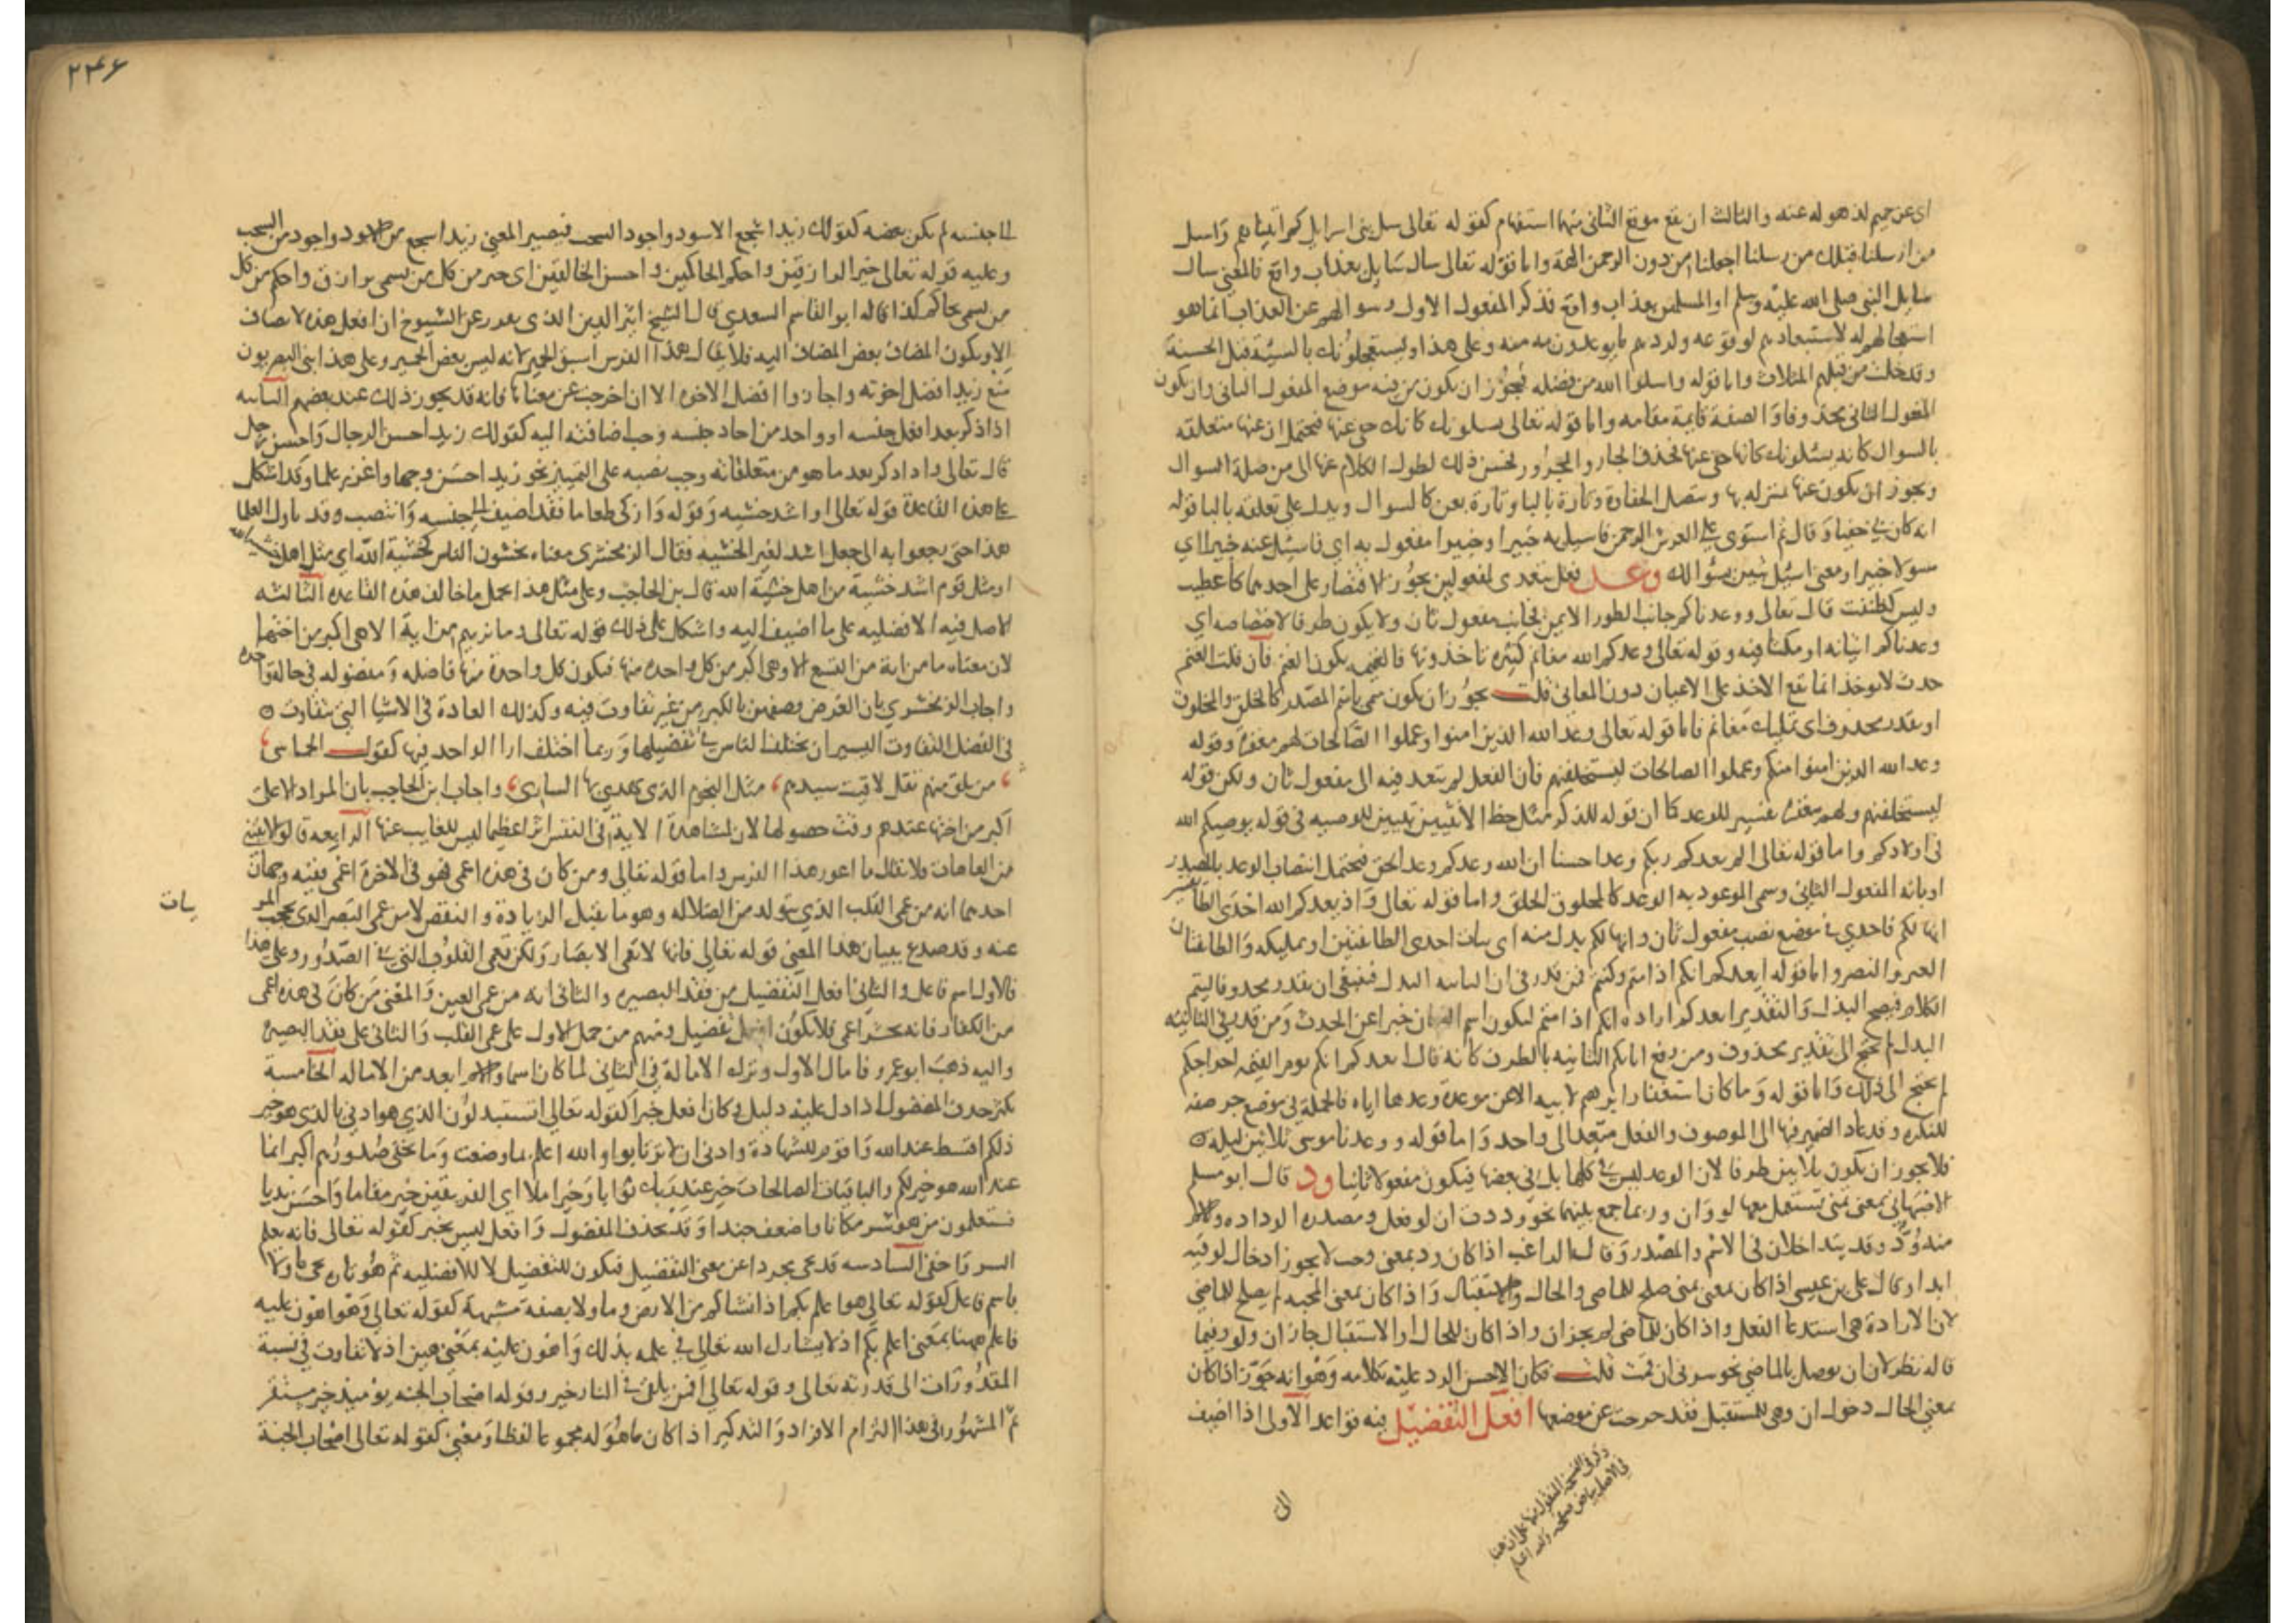 اى عن حميم لذهوله عنه والثالث ان يقع موقع الثانى منهما استفهام كقوله تعالى سل بنى اسرايل كم اتيناهم وَاسىل
من ارسلنا قبلك من رسلنا اجعلنا من دون الرحمن الهة واما قوله تعالى سال سايل بعذاب واقع فالمعنى سال
سايل النبى صلى الله عليه وسلم او المسلمين بعذاب واقع فذكر المفعول الاول وسوالهم عن العذاب انما هو
استعجالهم له لاستبعادهم لوقوعه ولردهم ما يوعدون به منه وعلى هذا ويستعجلونك بالسيئة قبل الحسنة
وقد خلت من قبلهم المثلات واما قوله واسلوا الله من فضله فيجوز ان يكون من فيه موضع المفعول الثانى وان يكون
المفعول الثانى محذوفا والصفة قايمة مقامه واما قوله تعالى يسلونك كانك حفى عنها فيحتمل ان عنها متعلقه
بالسوال كانه يسئلونك عنها كانك حفى عنها فحذف الجار والمجرور لحسن ذلك لطول الكلام عنها الى من صلة السوال
ويجوز ان يكون عنها بمنزله بها وتتصل الحفاوة وتارة بالبا وتارة بعن كالسوال ويدل على تعلقه بالبا قوله
انه كان بى حفيا وَقال ثم استوى على العرش الرحمن فاسيل به خبيرا وخبيرا مفعول به اى فاسئل عنه خبيرا اى
سولا خبيرا ومعنى اسئل تبين بسُوالك وعد فعل يتعدى لمفعولين يجوز الاقتصار على احدهما كاعطيت
وليس كظننت قال تعالى ووعدناكم جانب الطور الايمن فجانب مفعول ثان ولا يكون ظرفا لاختصاصه اى
وعدناكم اتيانه او مكثا فيه وقوله تعالى وعدكم الله مغانم كثيره تاخذونها فالغنيمه يكون الغنم فان قلت الغنم
حدث لا يوخذ انما يقع الاخذ على الاعيان دون المعانى قلت يجوز ان يكون سمى باسم المصدر كالخلق والمخلوق
او يقدر محذوف اى تمليك مغانم فاما قوله تعالى وعد الله الذين امنوا وعملوا الصالحات لهم مغفرة وقوله
وعد الله الذين امنوا منكم وعملوا الصالحات ليستخلفنهم فان الفعل لم يتعد فيه الى مفعول ثان ولكن قوله
ليستخلفنهم ولهم مغفرة تفسير للوعد كما ان قوله للذكر مثل حظ الانثيين تبيين للوصيه فى قوله يوصيكم الله
فى اولادكم واما قوله تعالى الم يعدكم ربكم وعدا حسنا ان الله وعدكم وعد الحق فيحتمل انتصاب الوعد بالمصدر
او بانه المفعول الثانى وسمى الموعود به الوعد كالمخلوق الخلق واما قوله تعالى وَاذ يعدكم الله احدى الطايفتين
انها لكم فاحدى فى موضع نصب مفعول ثان وانها لكم بدل منه اى بيات احدى الطايفتين او تمليكه وَالطايفتان
العير والنصر واما قوله ايعدكم انكم اذا متم وكنتم فمن قدر فى ان الثانيه البدل فينبغى ان يقدر محذوفا ليتم
الكلام فيصح البدل وَالتقدير ايعدكم اراده انكم اذا متم ليكون اسم الزمان خبرا عن الحدث وَمن قدر فى الثانيه
البدل لم يحتج الى تقدير محذوف ومن رفع انكم الثانيه بالظرف كانه قال ايعدكم انكم يوم القيمه اخراجكم
لم يحتج الى ذلك وَاما قوله وَما كان استغفار ابرهيم لابيه الا عن موعدة وعدها اياه فالجملة فى موضع جر صفه
للنكره وقد عاد الضمير فيها الى الموصوف والفعل متعد الى واحد وَاما قوله ووعدنا موسى ثلاثين ليله
فلا يجوز ان يكون ثلاثين ظرفا لان الوعد ليس فى كلها بل فى بعضها فيكون مفعولا ثانيا ود قال ابو مسلم
الاصبهانى بمعنى تمنى يستعمل معها لو وَان وربما جمع بينهما نحو وددت ان لو فعل ومصدره الوداده والاسم
منه وُدّ وقد يتداخلان فى الاسم والمصدر وَقال الراغب اذا كان ود بمعنى احب لا يجوز ادخال لو فيه
ابدا وقال على بن عيسى اذا كان بمعنى تمنى صلح للماضى والحال والاستقبال وَاذا كان بمعنى المحبه لم يصلح للماضى
لان الارادة هى استدعا الفعل واذا كان للماضى لم يجز ان واذا كان للحال او الاستقبال جاز ان ولو وفيما
قاله نظر لان ان يوصل بالماضى نحو سرنى ان قمت قلت فكان الاحسن الرد عليه بكلامه وَهُو انه جوّز اذا كان
بمعنى الحال دخول ان وهى للمستقبل فقد خرجت عن موضعها افعل التفضيل فيه قواعد الاولى اذا اضيف
الى
وفى النسخه المنقول منها على ان هنا
فى الاصل بياض صفحه والله اعلم
٢٤٦
الى جنسه لم يكن بعضه كقولك زيد اشجع الاسود واجود السحب فيصير المعنى زيد اشجع من الاسود واجود من السحب
وعليه قوله تعالى خير الرازقين واحكم الحاكمين واحسن الخالقين اى خير من كل من يسمى برازق واحكم من كل
من يسمى بحاكم كذا قاله ابو القاسم السعدى قال الشيخ اثير الدين الذى تقرر عن الشيوخ ان افعل هذه لا تضاف
الا ويكون المضاف بعض المضاف اليه فلا يقال هذا الفرس اسبق الحمير لانه ليس بعض الحمير وعلى هذا بنى البصريون
منع زيد افضل اخوته واجازوا افضل الاخوه الا ان اخرجت عن معناها فانه قد يجوز ذلك عند بعضهم الثانيه
اذا ذكر بعد افعل جنسه او واحد من احاد جنسه وجب اضافته اليه كقولك زيد احسن الرجال وَاحسن رجل
قال تعالى واذا ذكر بعد ما هو من متعلقاته وجب نصبه على التمييز نحو زيد احسَن وجها واغزر علما وقد اشكل
على هذه القاعدة قوله تعالى او اشد خشيه وَقوله وَازكى طعاما فقد اضيف الى جنسه وَانتصب وقد تاول العلما
هذا حتى رجعوا به الى جعل اشد لغير الخشيه فقال الزمخشرى معناه يخشون الناس كخشية الله اى مثل اهل خشية الله
او مثل قوم اشد خشية من اهل خشية الله قال بن الحاجب وعلى مثل هذا يحمل ما خالف هذه القاعده الثالثه
الاصل فيه الافضليه على ما اضيف اليه واشكل على ذلك قوله تعالى وما نريهم من اية الا هى اكبر من اختها
لان معناه ما من اية من التسع الا وهى اكبر من كل واحده منها فيكون كل واحدة منها فاضله وَمفضوله فى حالة واحده
واجاب الزمخشرى بان الغرض وصفهن بالكبر من غير تفاوت فيه وكذلك العادة فى الاشيا التى تتفاوت
فى الفضل التفاوت اليسير ان يختلف الناس فى تفضيلها وَربما اختلف ارا الواحد فيها كقول الحماسى
من تلق منهم تقل لاقيت سيدهم مثل النجوم الذى يهدى بها السارى واجاب ابن الحاجب بان المراد الا هى
اكبر من اختها عندهم وقت حصولها لان لمشاهدة الاية فى النفس اثرا عظيما ليس للغايب عنها الرابعه قالوا لا يبنى
من العاهات فلا يقال ما اعور هذا الفرس واما قوله تعالى ومن كان فى هذه اعمى فهو فى الاخرة اعمى ففيه وجهان
احدهما انه من عمى القلب الذى يتولد من الضلاله وهو ما يقبل الزيادة والنقص لا من عمى البصر الذى يحجب المر
بيات
عنه وقد صدع ببيان هذا المعنى قوله تعالى فانها لا تعمى الابصار وَلكن تعمى القلوب التى فى الصدور وعلى هذا
فالاول اسم فاعل والثانى افعل التفضيل من فقد البصيره والثانى انه من عمى العين وَالمعنى مَن كانَ فى هذه اعمى
من الكفار فانه يحشر اعمى فلا يكون افعل تفضيل ومنهم من حمل الاول على عمى القلب وَالثانى على فقد البصيره
واليه ذهب ابو عمرو فامال الاول وترك الامالة فى الثانى لما كان اسما والاسم ابعد من الاماله الخامسة
يكثر حذف المفضول اذا دل عليه دليل وكان افعل خبرا كقوله تعالى اتستبدلون الذى هو ادنى بالذى هو خير
ذلكم اقسط عند الله وَاقوم للشهادة وادنى ان لا ترتابوا والله اعلم بما وضعت وَما تخفى صُدورهم اكبر انما
عند الله هو خير لكم والباقيات الصالحات خير عند ربك ثوابا وَخير املا اى الفريقين خير مقاما وَاحسَن نديا
فسيعلمون من هو شر مكانا واضعف جندا وَقد يحذف المفضول وَافعل ليس بخبر كقوله تعالى فانه يعلم
السر وَاخفى السادسه قد يجى مجردا عن معنى التفضيل فيكون للتفضيل لا للافضليه ثم هُو تاره يجى ماولا
باسم فاعل كقوله تعالى هو اعلم بكم اذ انشاكم من الارض وماولا بصفة مشبهة كقوله تعالى وَهُو اهون عليه
فاعلم ههنا بمعنى اعلم بكم اذ لا يشارك الله تعالى فى علمه بذلك وَاهون عليه بمعنى هين اذ لا تفاوت فى نسبة
المقدُورات الى قدرته تعالى وقوله تعالى افمن يلقى فى النار خير وقوله اصحاب الجنه يوميذ خير مستقر
ثم المشهُور فى هذا التزام الافراد وَالتذكير اذا كان ما هُو له مجموعا لفظا وَمعنى كقوله تعالى اصحاب الجنة